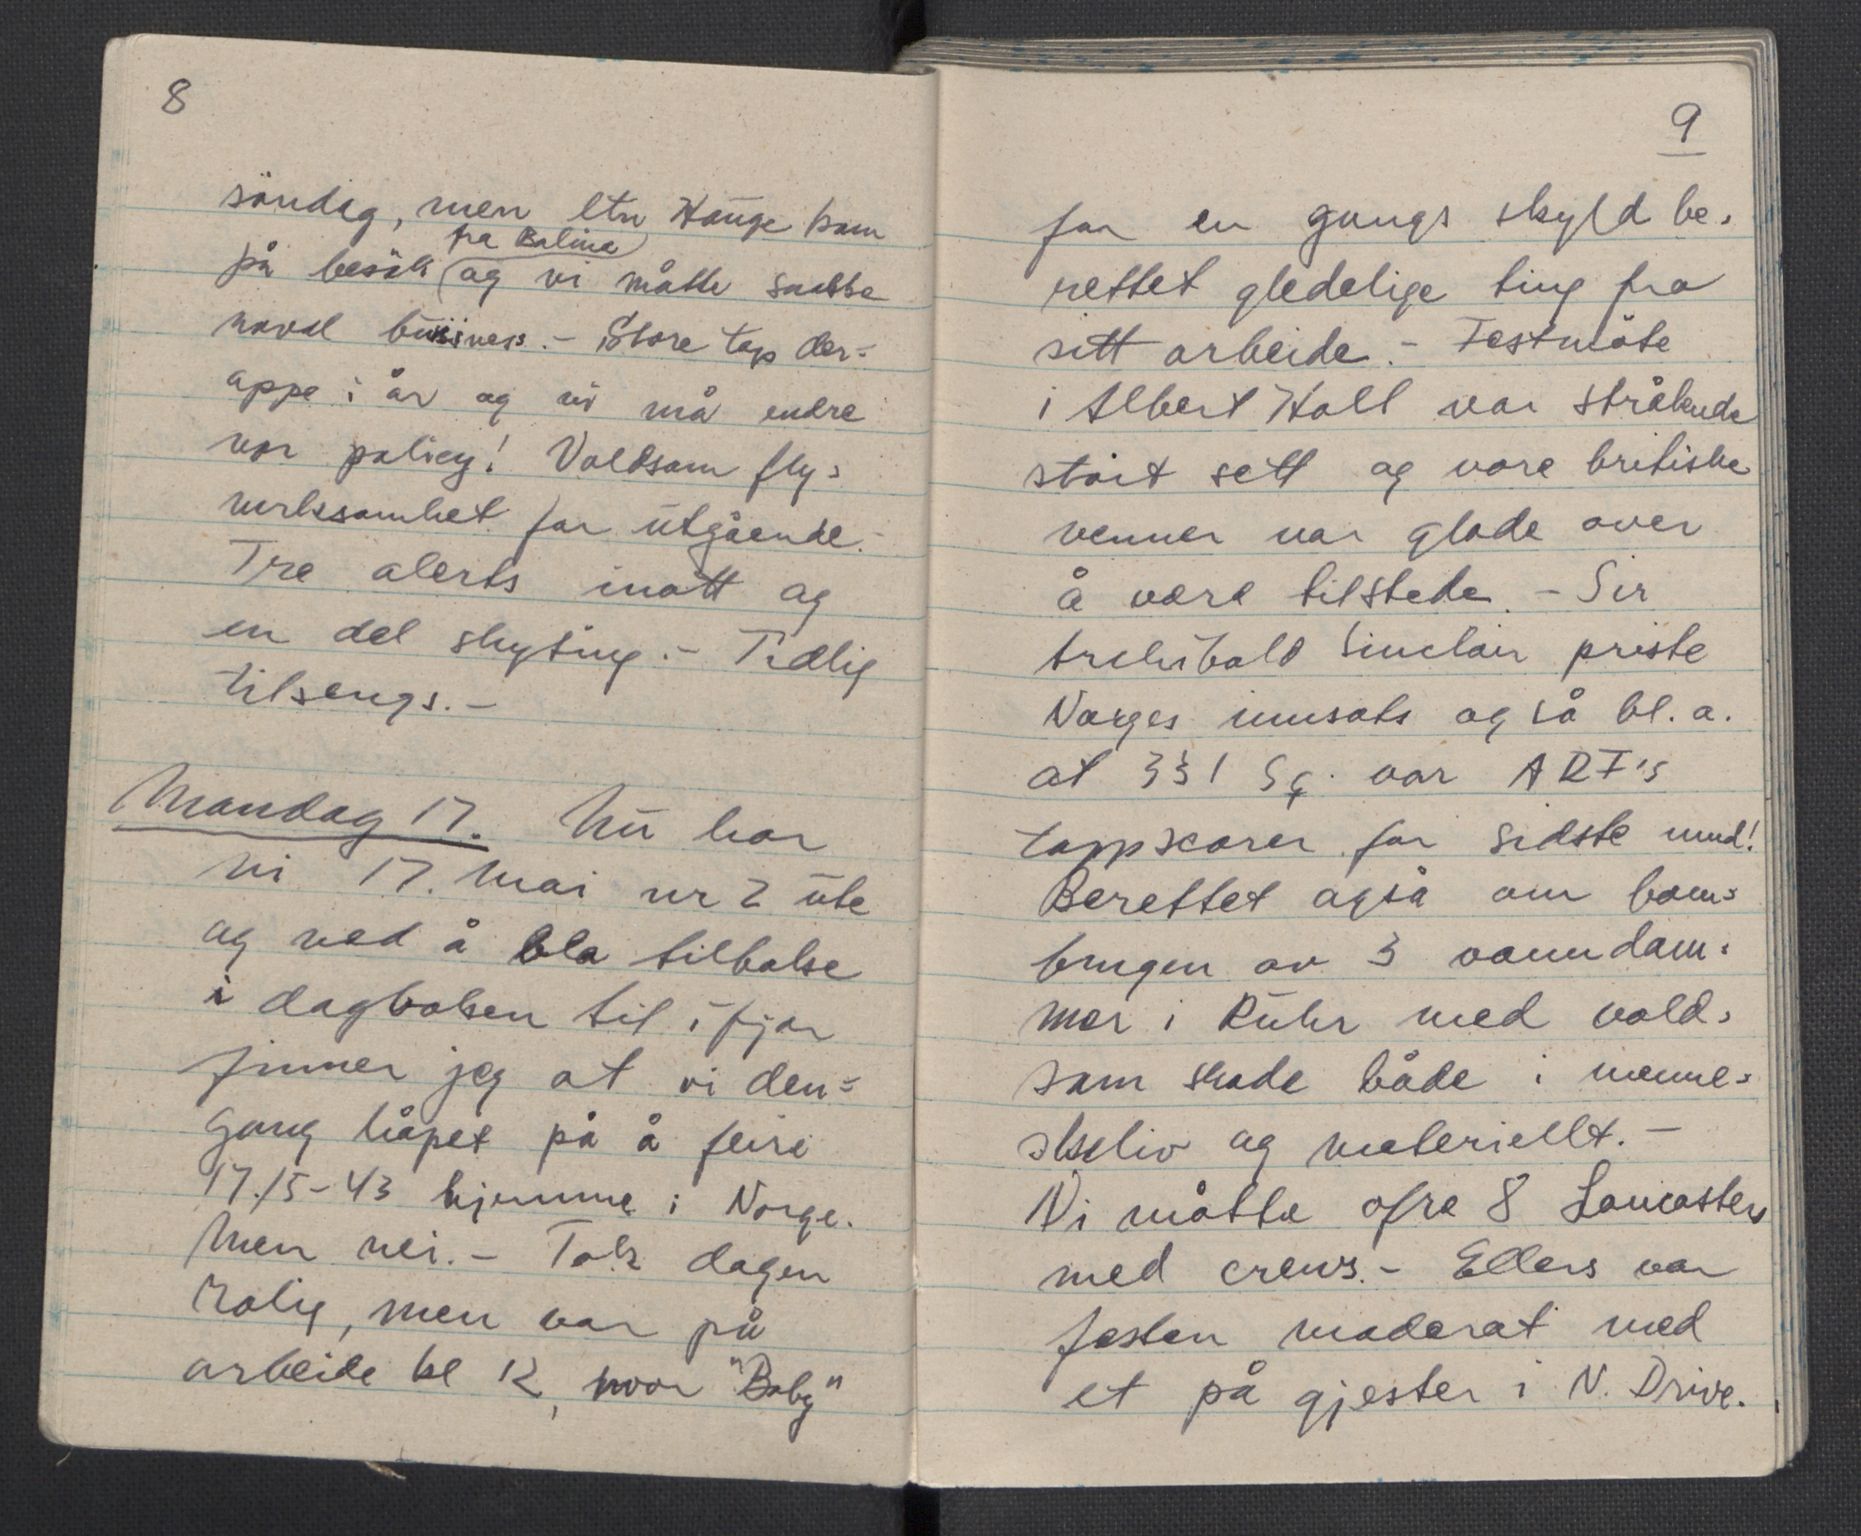 8
söndag, men ltn Hauge kom
fra Balina
på besök og vi måtte snakke
naval business.- Store tap der-
oppe i år og vi må endre
vor policy! Voldsom fly=
virksomhet for utgående.-
Tre alerts inatt og
en del skyting.- Tidlig
tilsengs.-
Mandag 17. Nu har
vi 17. mai nr 2 ute
og ved å bla tilbake
i dagboken til ifjor
finner jeg at vi den=
gang håpet på å feire
17./5-43 hjemme i Norge.
Men nei.- Tok dagen
rolig, men var på
arbeide kl 12, hvor "Baby"
9
for en gangs skyld be-
rettet gledelige ting fra
sitt arbeide.- Festmöte
i Albert Hall var strålende
stort sett og vore britiske
venner var glade over
å være tilstede.- Sir
Archibald Sinclair priste
Norges innsats også bl.a.
at 331 Sq. var ARF's
toppscorer for sidste mnd!
Berettet også om bom=
bingen av 3 vanndam=
mer i Ruhr med vold=
som skade både i menne=
skeliv og materiellt.-
Vi måtte ofre 8 Lancasters
med crews.- Ellers var
festen moderat med
et på gjester i N. Drive.